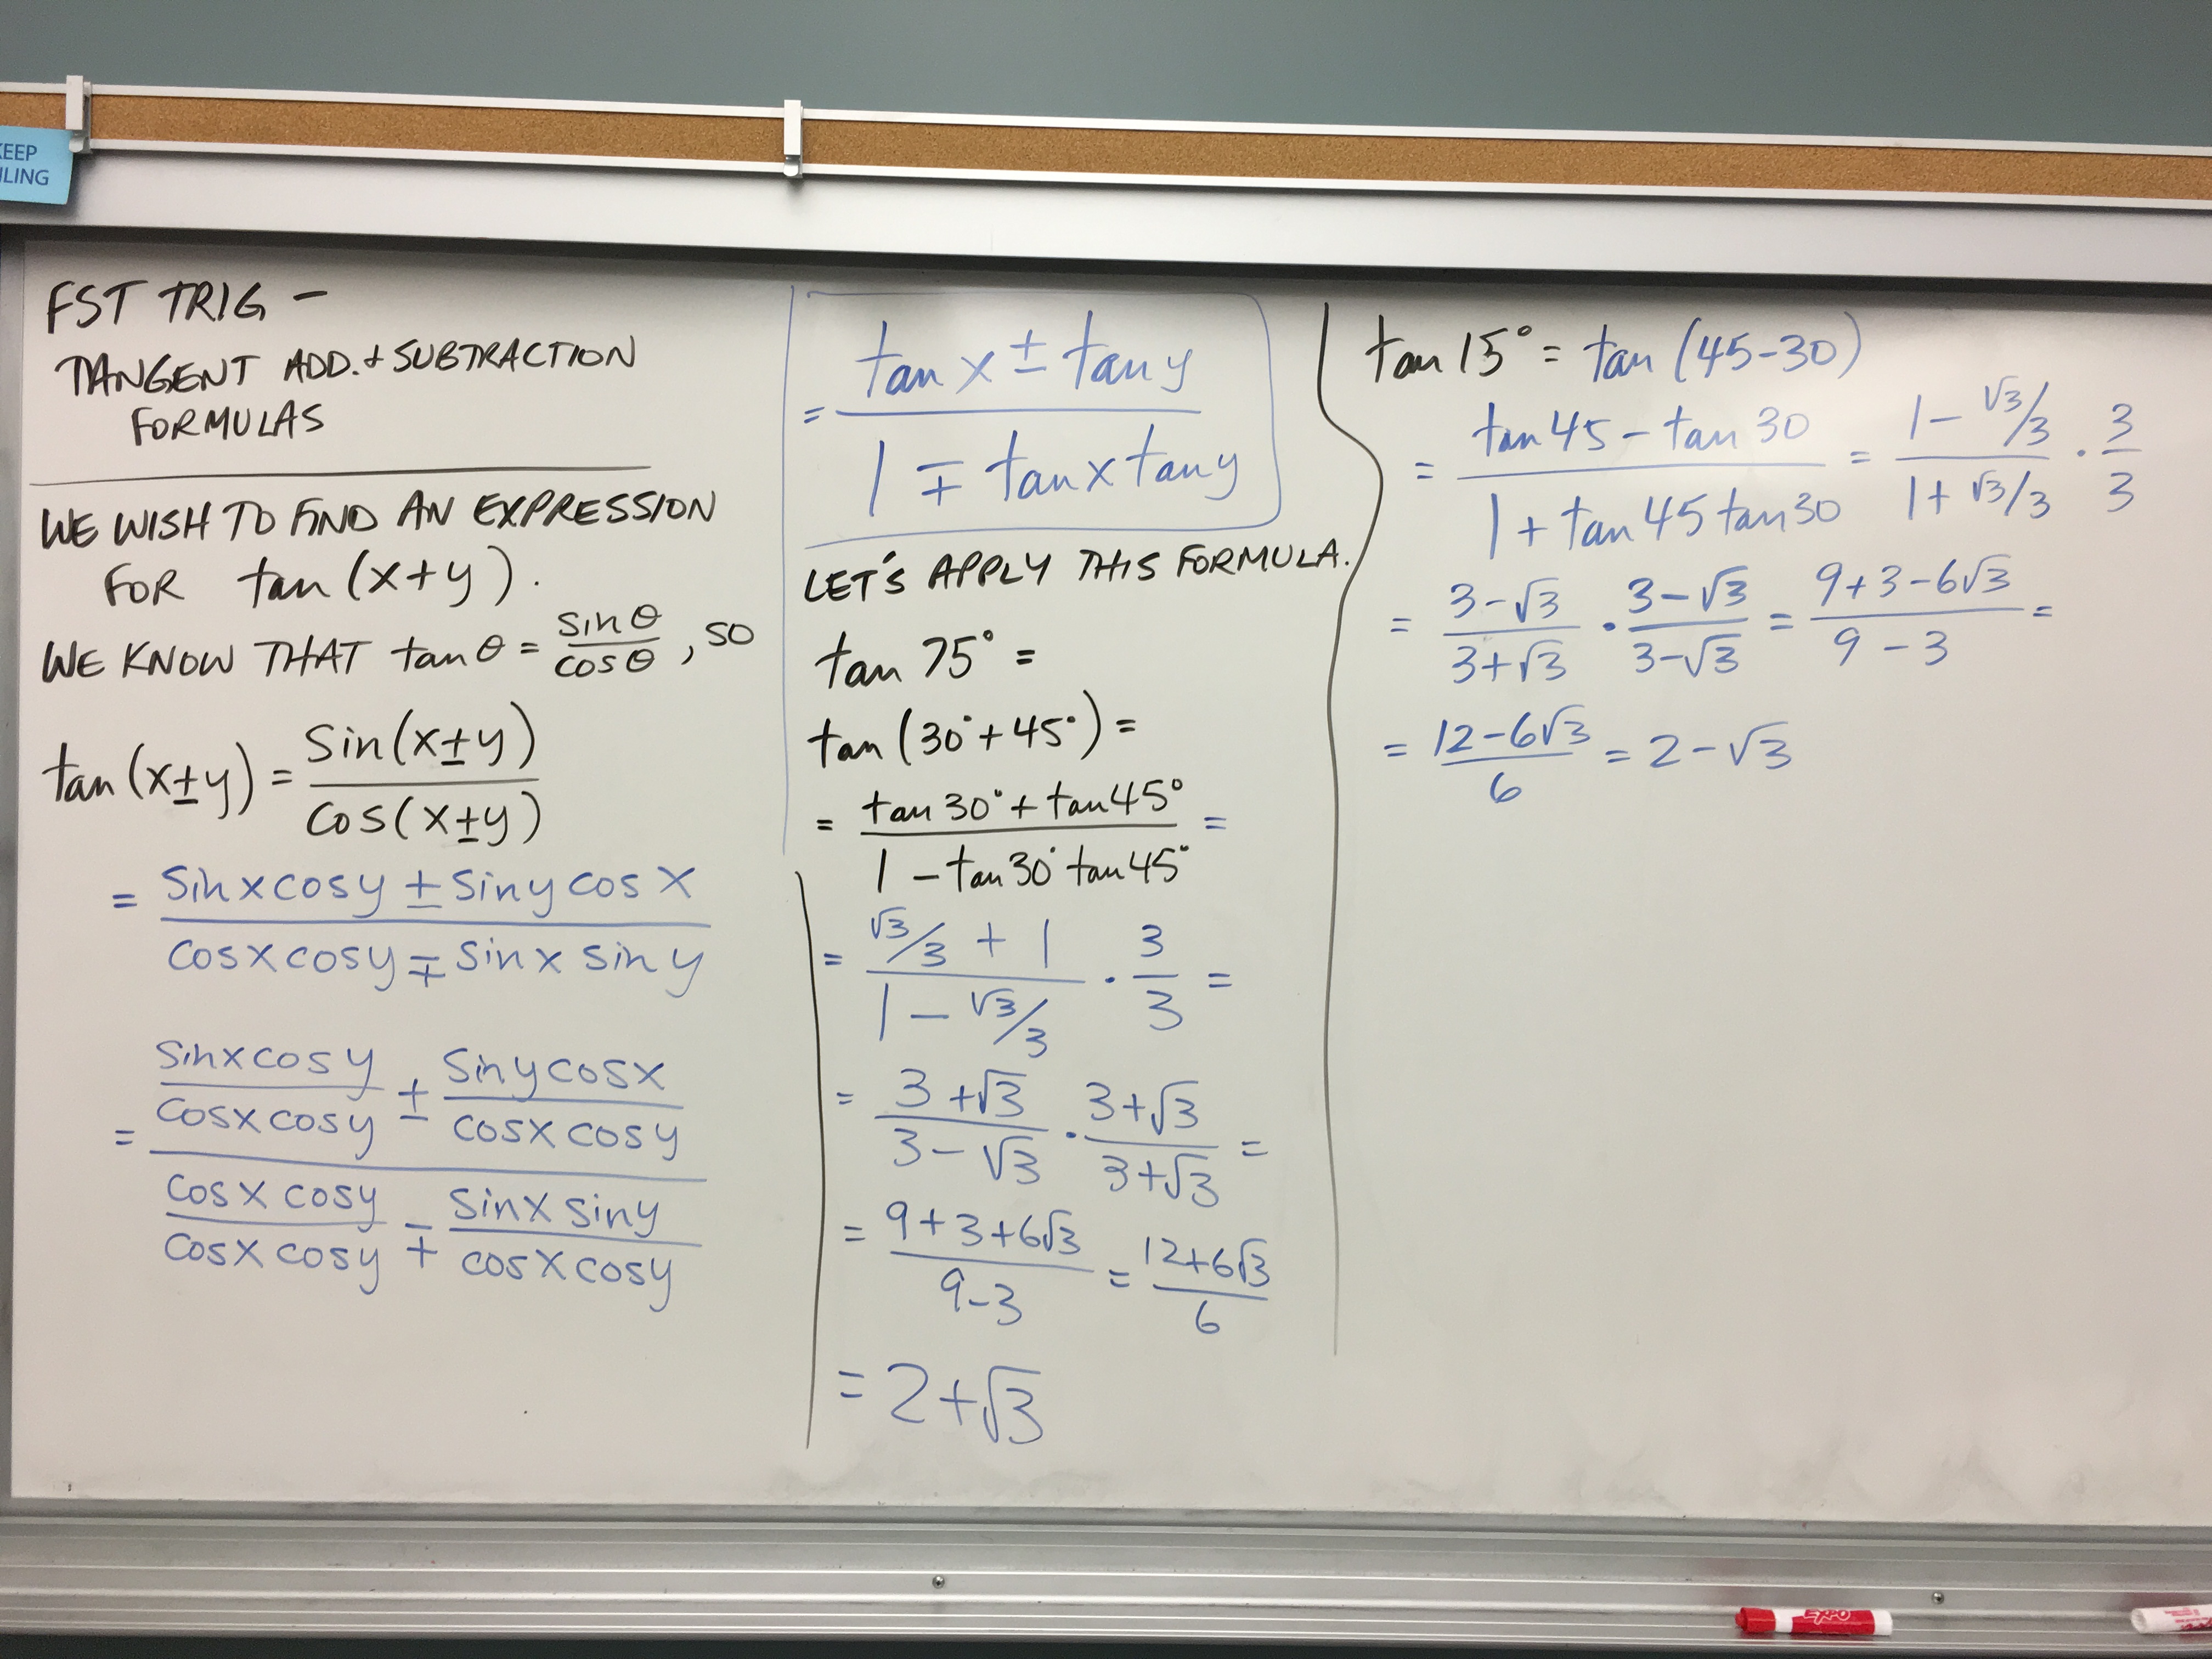 KEEP
LING
FST TRIG –
TANGENT ADD. + SUBTRACTION
FORMULAS
WE WISH TO FIND AN EXPRESSION
FOR tan (x+y).
WE KNOW THAT tan θ = sin θ / cos θ, SO
tan (x±y) = sin(x±y) / cos(x±y)
= sin x cos y ± sin y cos x / cos x cos y ∓ sin x sin y
= sin x cos y / cos x cos y ± sin y cos x / cos x cos y
cos x cos y / cos x cos y ∓ sin x sin y / cos x cos y
= tan x ± tan y / 1 ∓ tan x tan y
LET'S APPLY THIS FORMULA.
tan 75° =
tan (30° + 45°) =
= tan 30° + tan 45° / 1 – tan 30° tan 45° =
= √3/3 + 1 / 1 – √3/3 · 3/3 =
= 3 + √3 / 3 – √3 · 3 + √3 / 3 + √3 =
= 9 + 3 + 6√3 / 9 – 3 = 12 + 6√3 / 6
= 2 + √3
tan 15° = tan (45-30)
= tan 45 – tan 30 / 1 + tan 45 tan 30 = 1 – √3/3 / 1 + √3/3 · 3/3
= 3 – √3 / 3 + √3 · 3 – √3 / 3 – √3 = 9 + 3 – 6√3 / 9 – 3 =
= 12 – 6√3 / 6 = 2 – √3
EXPO